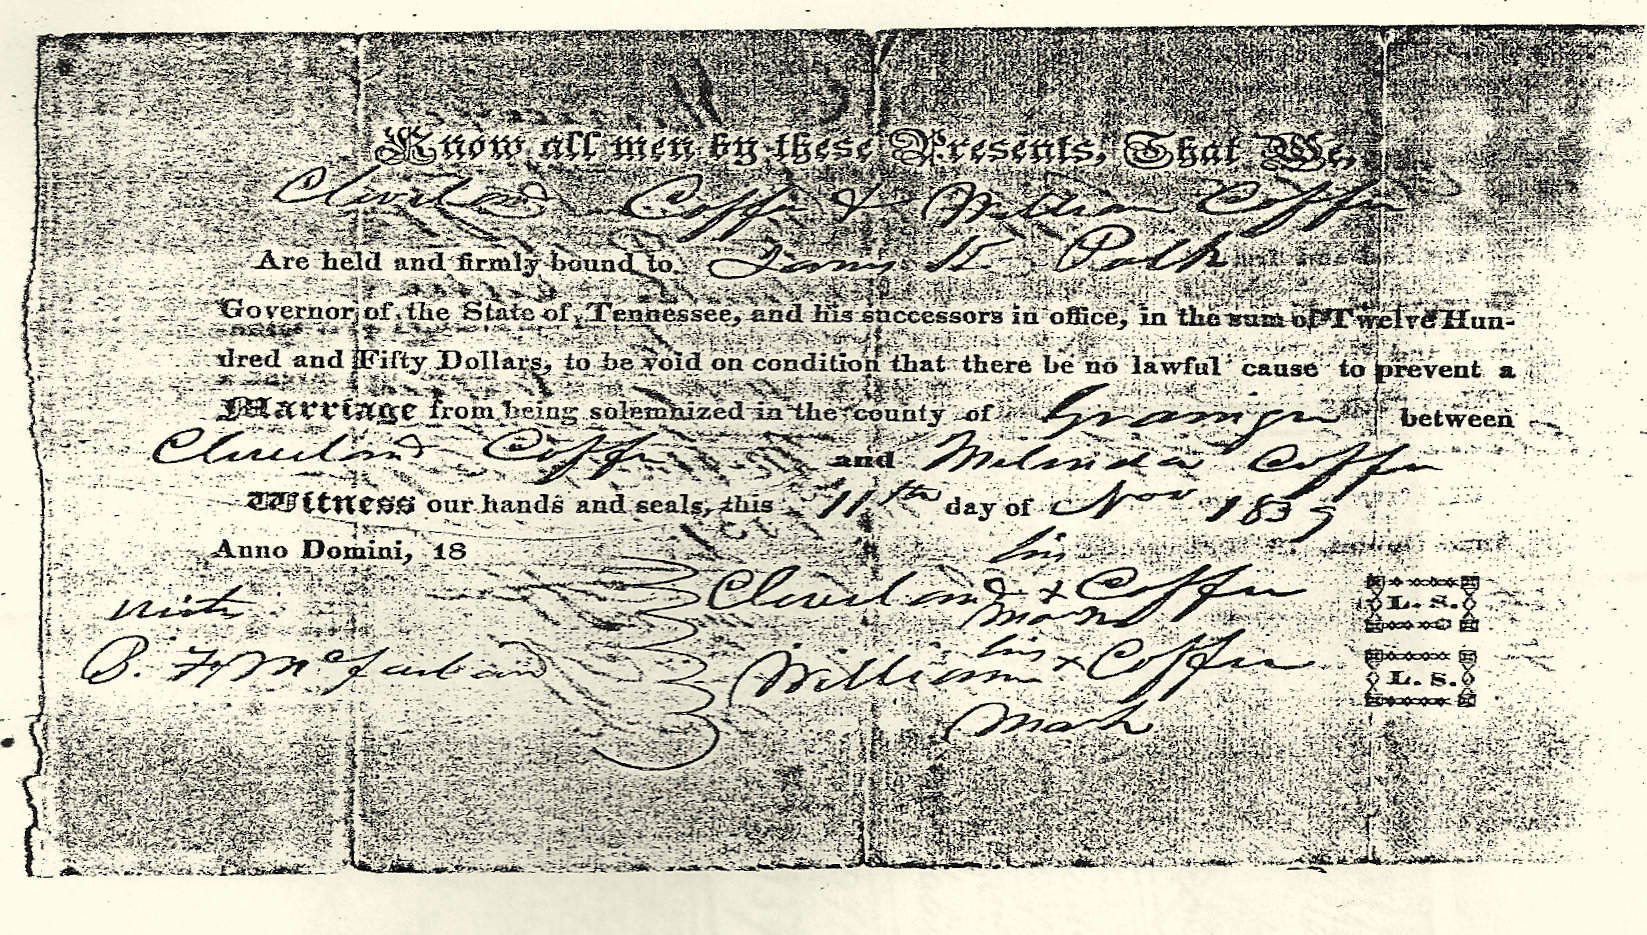 Know all men by these Presents, That We,
Cleveland Coffee & William Coffee
Are held and firmly bound to James K Polk
Governor of the State of Tennessee, and his successors in office, in the sum of Twelve Hun-
dred and Fifty Dollars, to be void on condition that there be no lawful cause to prevent a
Marriage from being solemnized in the county of Grainger between
Cleveland Coffee and Melinda Coffee
Witness our hands and seals, this 11th day of Nov 1839
Anno Domini, 18
his
Cleveland x Coffee L. S.
mark
his
B. F. McFarland William x Coffee L. S.
mark